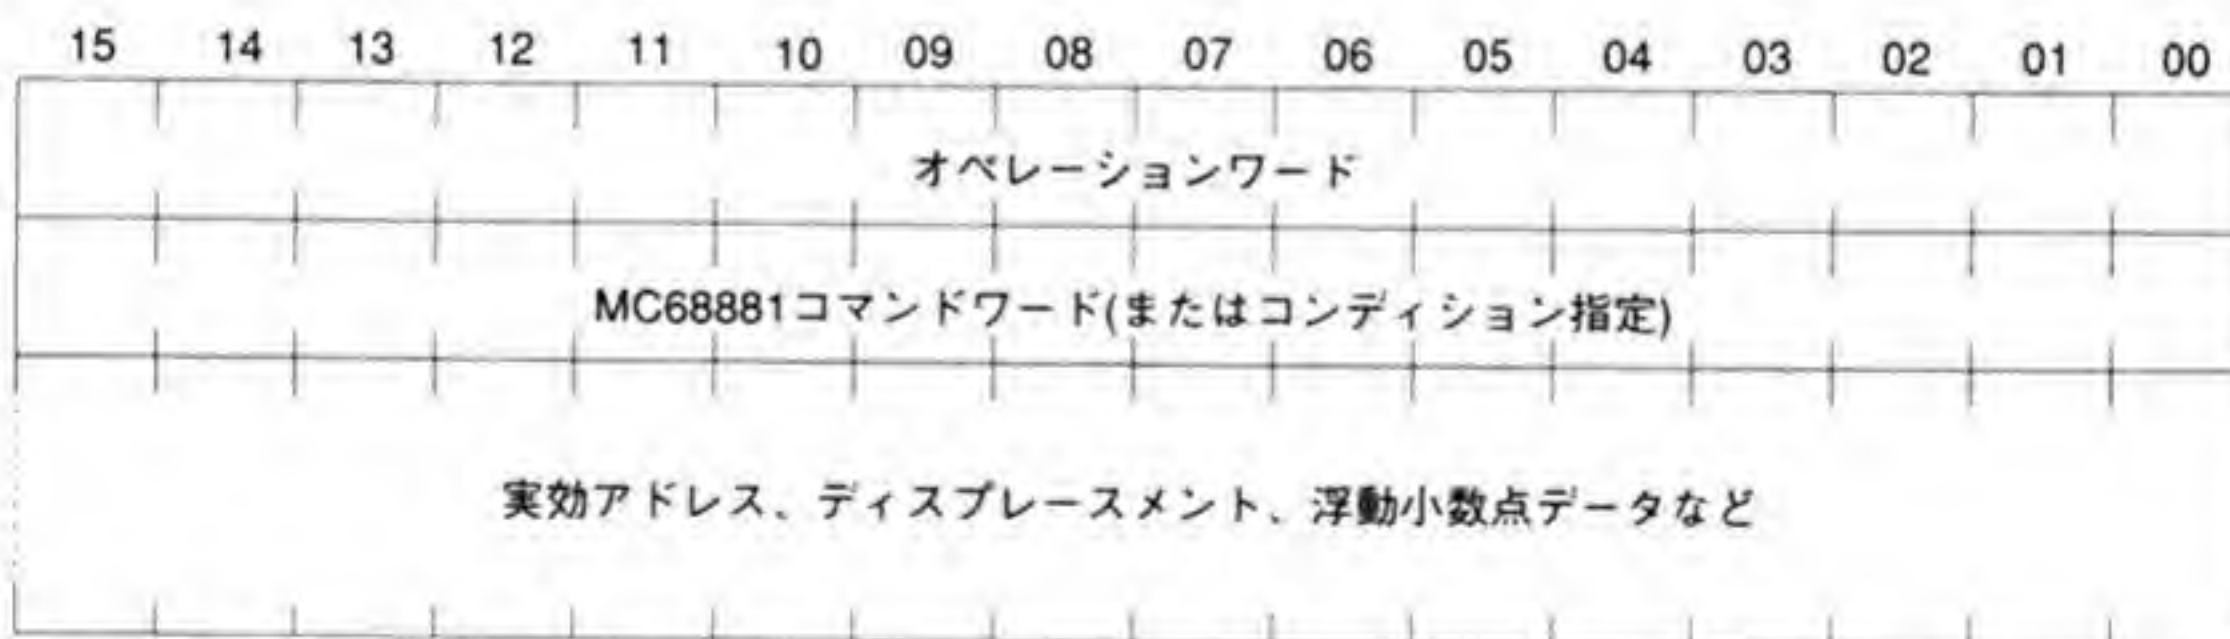 15 14 13 12 11 10 09 08 07 06 05 04 03 02 01 00
オペレーションワード
MC68881コマンドワード(またはコンディション指定)
実効アドレス、ディスプレースメント、浮動小数点データなど